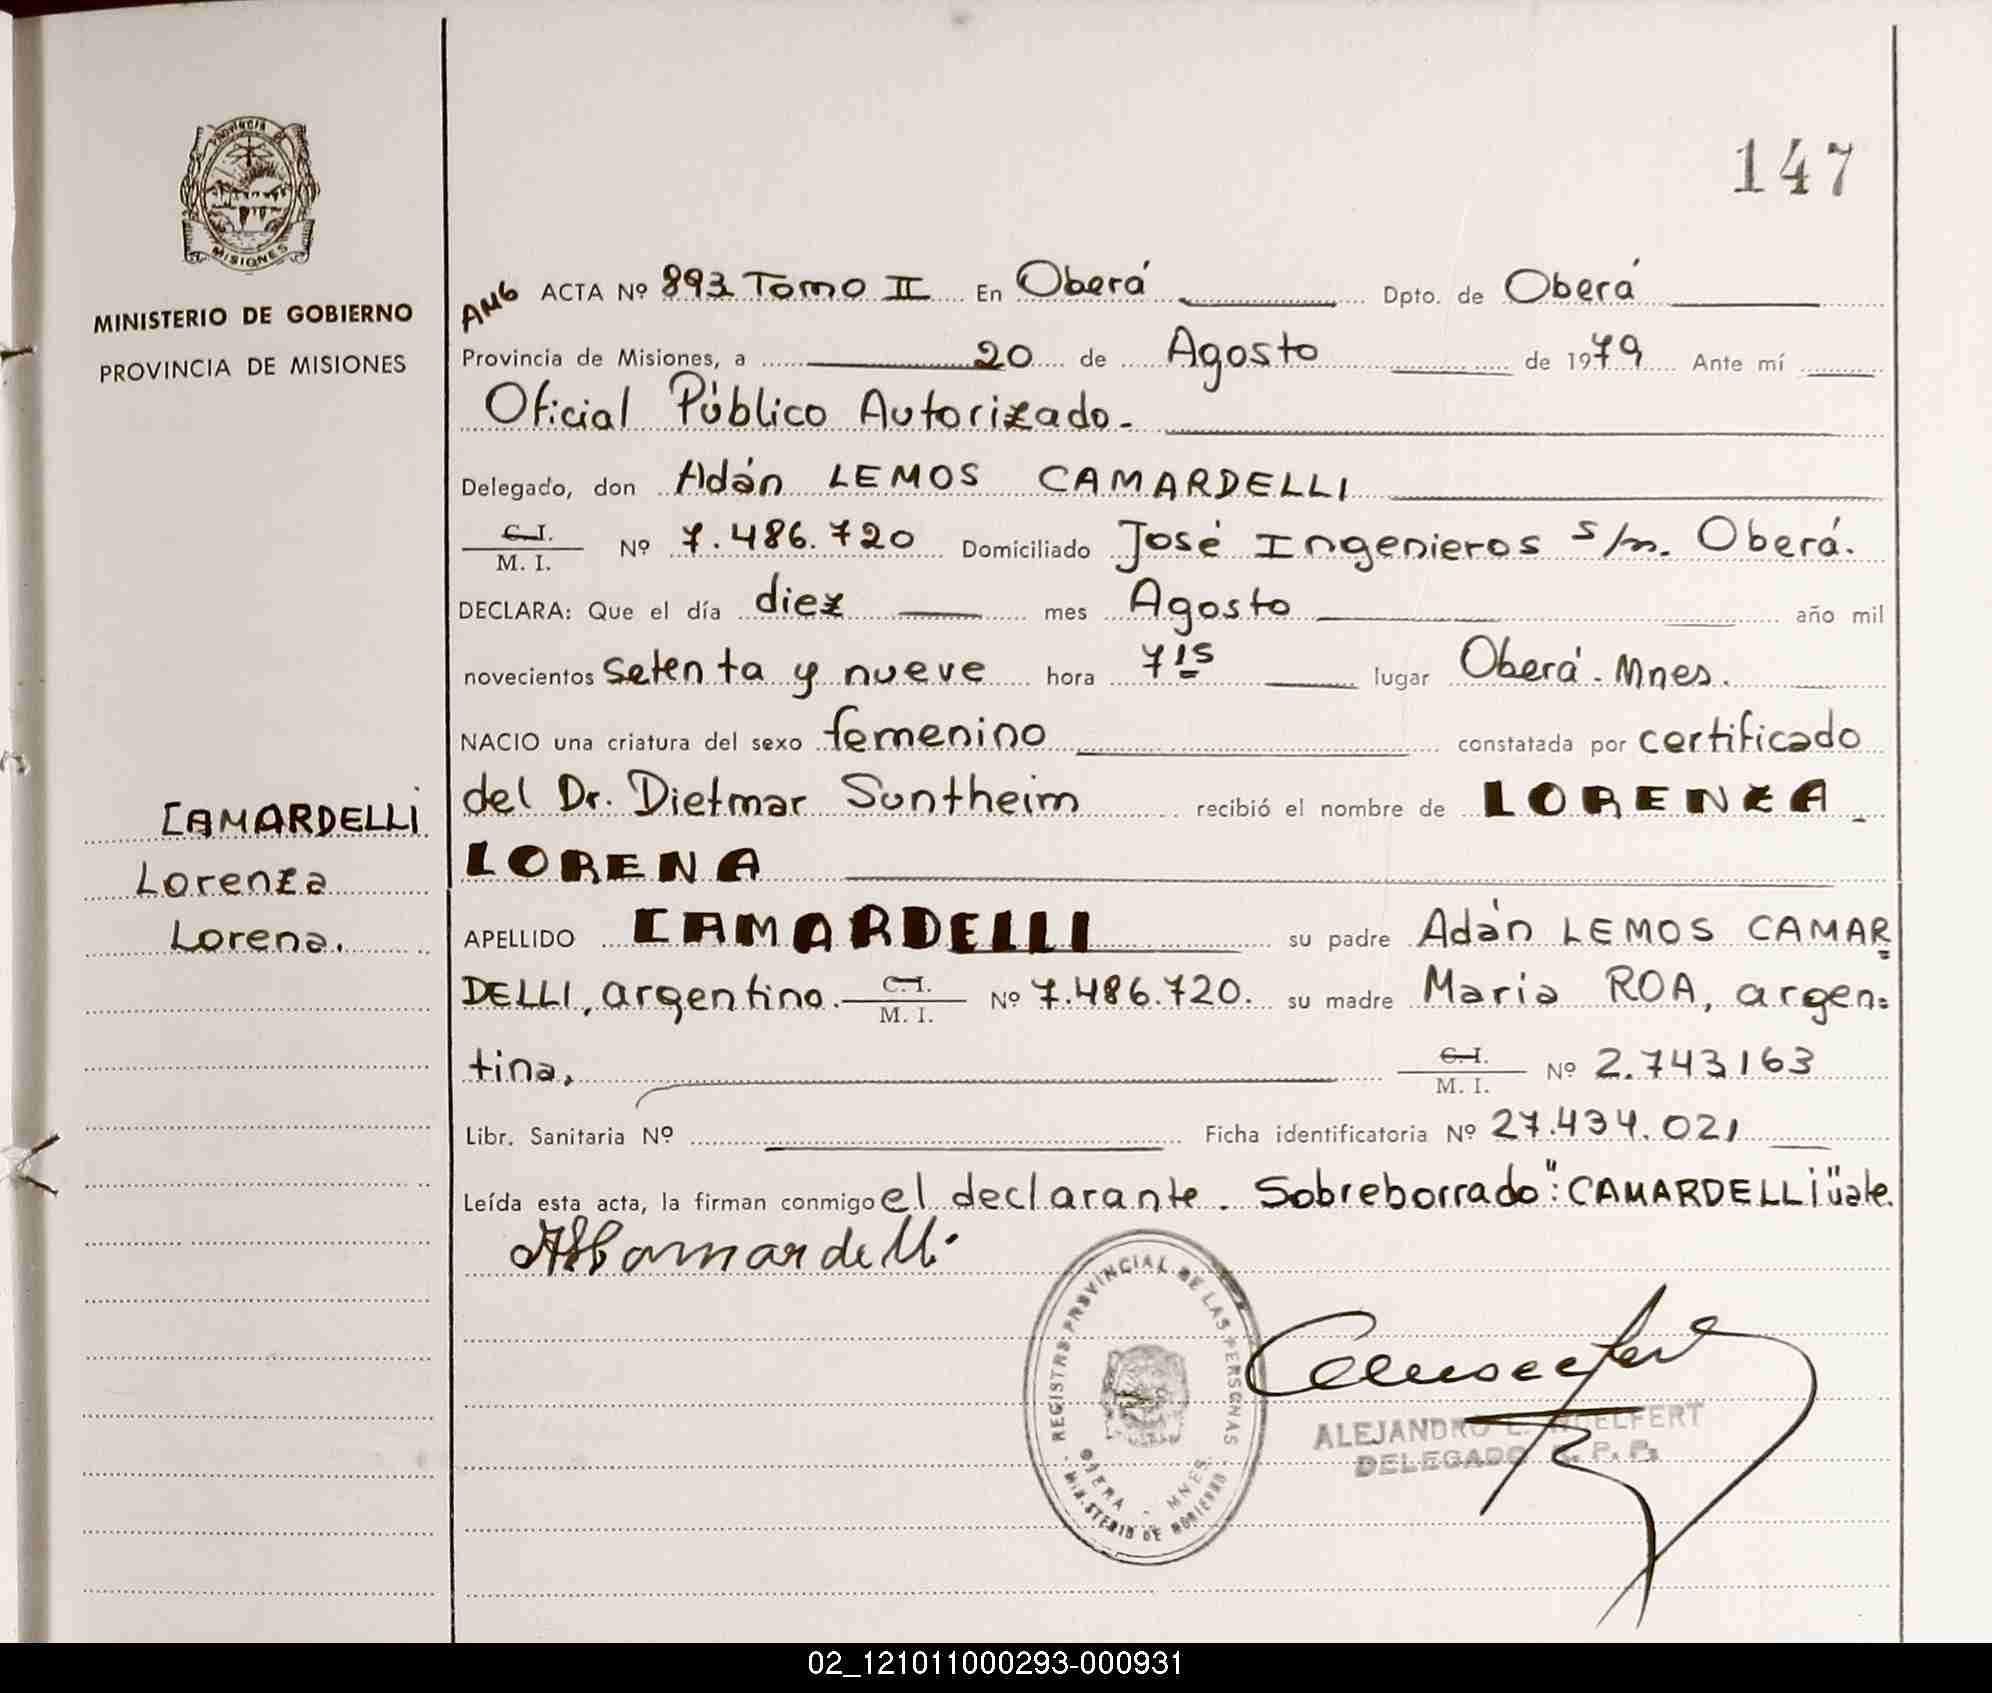 147
PROVINCIA DE
MISIONES
MINISTERIO DE GOBIERNO
PROVINCIA DE MISIONES
CAMARDELLI
Lorenza
Lorena.
AMG ACTA Nº 893 Tomo II En Oberá Dpto. de Oberá
Provincia de Misiones, a 20 de Agosto de 1979 Ante mí
Oficial Público Autorizado.
Delegado, don Adán LEMOS CAMARDELLI
C. I. / M. I. Nº 7.486.720 Domiciliado José Ingenieros s/n. Oberá.
DECLARA: Que el día diez mes Agosto año mil
novecientos setenta y nueve hora 7 15 lugar Oberá. Mnes.
NACIO una criatura del sexo femenino constatada por certificado
del Dr. Dietmar Sontheim recibió el nombre de LORENZA
LORENA
APELLIDO CAMARDELLI su padre Adán LEMOS CAMAR=
DELLI, argentino. C. I. / M. I. Nº 7.486.720. su madre Maria ROA, argen=
tina, C. I. / M. I. Nº 2.743163
Libr. Sanitaria Nº Ficha identificatoria Nº 27.434.021
Leída esta acta, la firman conmigo el declarante. Sobreborrado: "CAMARDELLI" vale.
ALCamardelli
REGISTRO PROVINCIAL DE LAS PERSONAS
OBERA - MNES.
MINISTERIO DE GOBIERNO
ALEJANDRO
DELEGADO R. P. P.
02_121011000293-000931